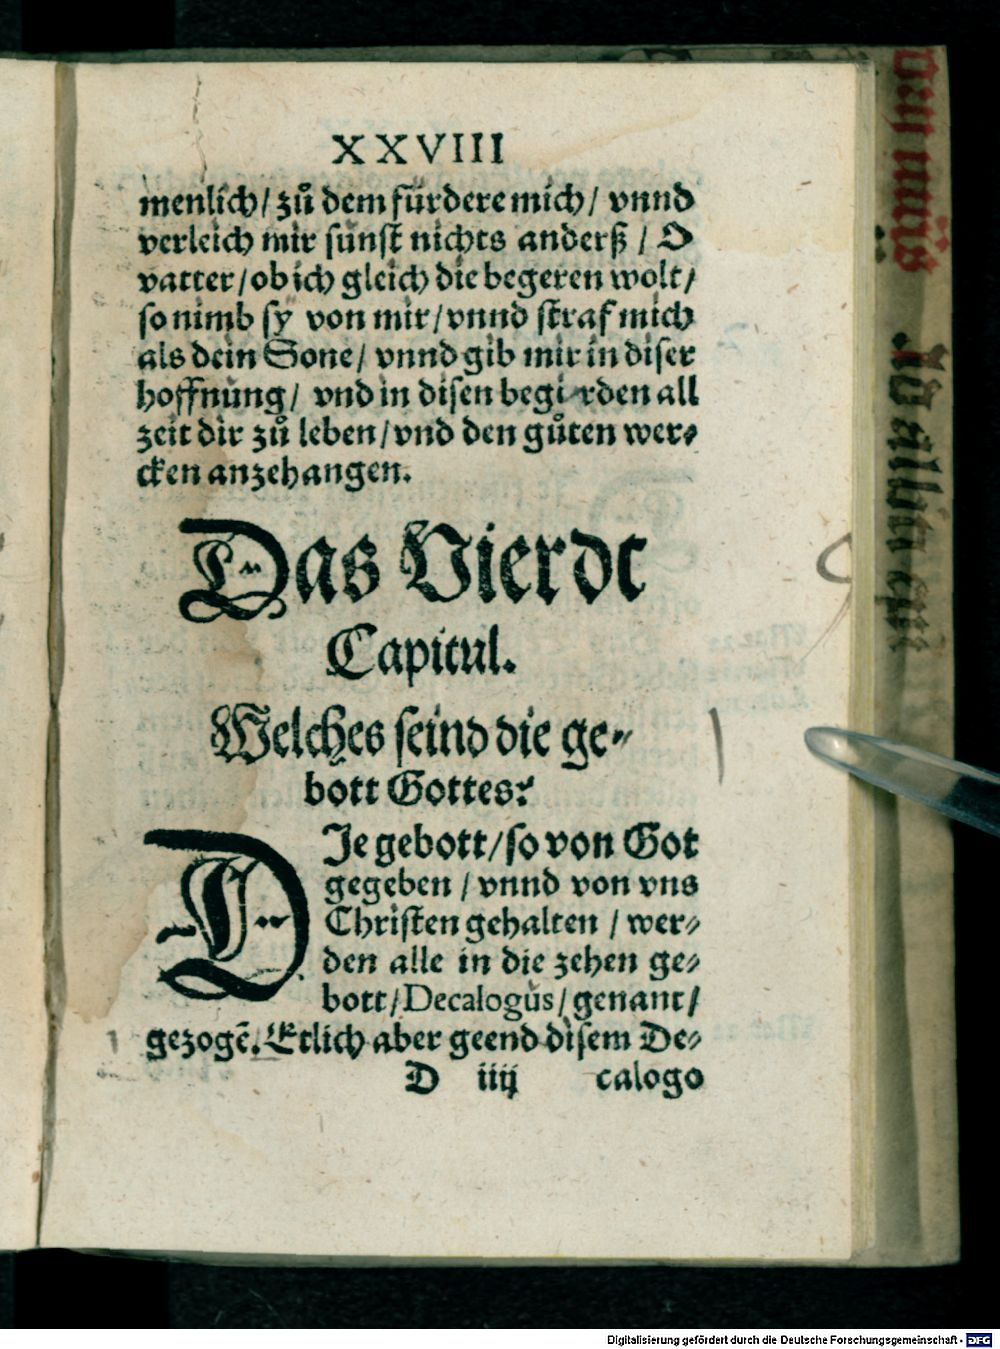 XXVIII
menlich/ zů dem fürdere mich/ vnnd
verleich mir sunst nichts anderß / O
vatter/ ob ich gleich die begeren wolt/
so nimb sy von mir/ vnnd straf mich
als dein Sone/ vnnd gib mir in diser
hoffnung/ vnd in disen begirden all
zeit dir zů leben/ vnd den gůten wer⸗
cken anzehangen.
Das Vierdt
Capitul.
Welches seind die ge⸗
bott Gottes?
DIe gebott/ so von Got
gegeben / vnnd von vns
Christen gehalten / wer⸗
den alle in die zehen ge⸗
bott/ Decalogus/ genant/
gezogẽ. Etlich aber geend disem De⸗
D iiij calogo
Digitalisierung gefördert durch die Deutsche Forschungsgemeinschaft - DFG